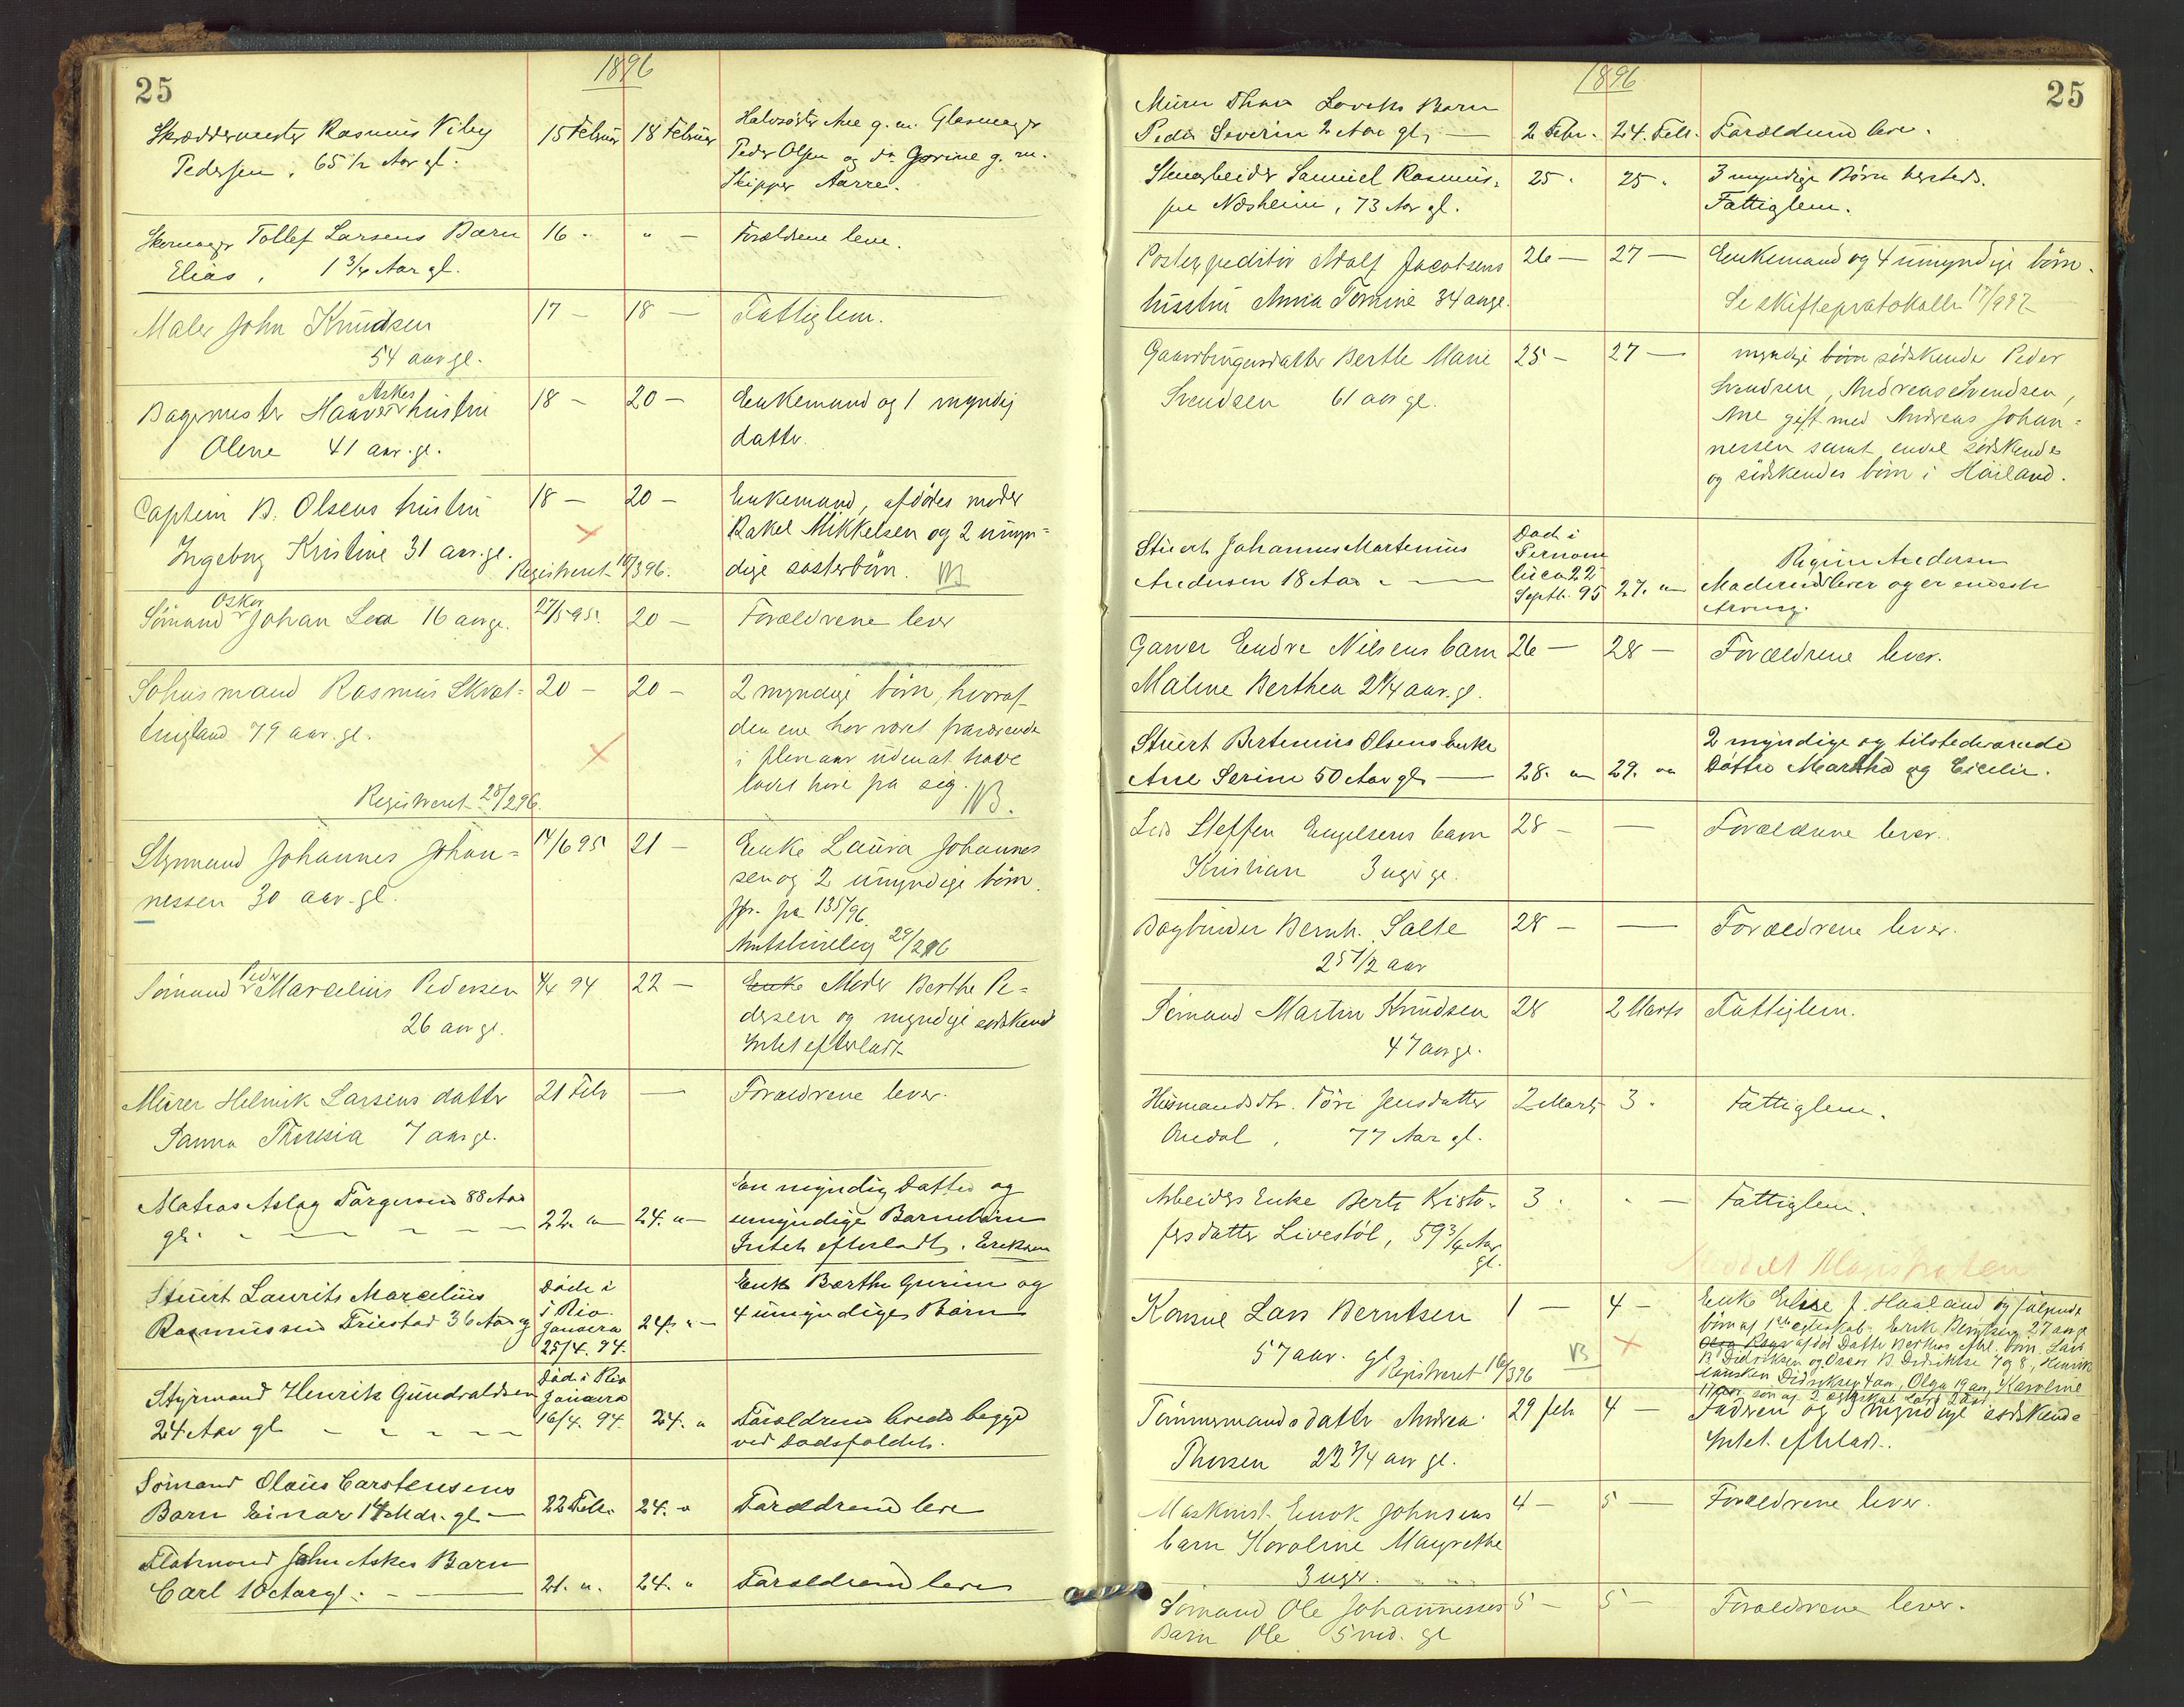 25
1896
Skræddermester Rasmus Viby 15 Februar 18 Februar Halvsøster Ane g. m. Glasmager
Pedersen, 65 1/2 Aar gl. Peder Olsen og do Gurine g. m.
Skipper Aarre.
Skomager Tollef Larsens Barn 16 - " - Forældrene leve.
Elias, 1 3/4 Aar gl.
Maler John Knudsen 17 - 18 - Fattiglem.
54 aar gl.
Bagermester Haaver Askes hustru 18 - 20 - Enkemand og 1 myndig
Olene 41 aar. gl. datter.
Captein B. Olsens hustru 18 - 20 - Enkemand, afdødes moder
Ingeborg Kristine 31 aar. gl. Rakel Mikkelsen og 2 umyn=
Registreret 10/3 96. dige søsterbørn. NB
Sømand Oskar Johan Lea 16 aar gl. 27/5 95. 20 - Forældrene lever
Rasmus Skret= 20 - 20 - 2 myndige børn, hvoraf
tingland 79 aar. gl. den ene har været fraværende
i flere aar uden at have
ladet høre fra sig. NB.
Registreret 28/2 96.
Styrmand Johannes Johan= 14/6 95 21 - Enke Laura Johannes
nessen 30 aar. gl. sen og 2 umyndige børn.
Jfr. fra 135/96.
29/2 96
Sømand Peder Marcelius Pedersen 4/4 94 22 - Enke Moder Berthe Pe=
26 aar gl. dersen og myndige sødskend
Intet efterladt
Murer Helmik Larsens datter 21 Febr - Forældrene lever.
Janna Theresia 7 aar gl.
Matros Aslag Torgersen 88 Aar En myndig Datter og
gl. 22. " 24. " umyndige Barnebørn
Intet efterladt. Eriksen
Stuert Laurits Marcelius Døde i Enke Berthe Gurine og
Rasmussen Friestad 36 Aar gl i Rio 24. " 4 umyndige Børn
Janeiro
25/4. 94.
Styrmand Henrik Gundvaldsen Død i Rio
24 Aar gl Janeiro
16/4. 94. 24. " Forældrene levede begge
ved Dødsfaldet.
Sømand Olaus Carstensens
Barn Einar 14 Mdr. gl. 22 Feb. 24. " Forældrene leve
Flatmand John Askes Barn
Carl 10 Aar gl. 21. " 24. " Forældrene leve
25
1896
Murer Thor Barn
Peder Severin 2 Aar gl, 2 Febr. 24. Feb. Forældrene leve.
Stenarbeider Samuel Rasmus= 25 " 25 " 3 myndige Børn hersteds.
sen Næsheim, 73 Aar gl. Fattiglem.
Postexpeditør Adolf Jacobsens 26 - 27 - Enkemand og 4 umyndige børn.
hustru Anna Tomine 34 aar gl. Se skifteprotokollen 17/9 97
Gaardbrugerdatter Berthe Marie 25 - 27 - myndige børn sødskende Peder
Svendsen 61 aar gl. Svendsen, Andreas Svendsen,
Ane gift med Andreas Johan=
nessen samt endel sødskende
og sødskendes børn i Høiland.
Stuert Johannes Martinius Død i
Andersen 18 Aar Pernam Regine Andersen
buco 22 Moderen lever og er eneste
Septb. 95 27. " Arving.
Garver Endre Nilsens barn 26 - 28 - Forældrene lever.
Maline Berthea 2 1/4 aar. gl.
Stuert Bertinius Olsens Enke 2 myndige og tilstedeværende
Ane Serine 50 Aar gl. 28. " 29. " Døttre Martha og Cicelie.
Steffen Engelsens barn 28 - - Forældrene lever.
Kristian 3 uger gl.
Bogbinder Bernh. Salte 28 - - Forældrene lever.
25 1/2 aar
Sømand Martin Knudsen 28 2 Marts Fattiglem.
47 aar gl.
Husmandsdtr. Tøri Jensdatter 2 Marts 3 " Fattiglem.
Ovedal, 77 Aar gl.
Arbeiders Enke Berte Kristo= 3 " " - Fattiglem.
fersdatter Livestøl, 59 3/4 Aar
gl.
Meddelt Magistraten
Konsul Lars Berntsen 1 - 4 - Enke Elise f. Haaland og følgende
57 aar. gl børn af 1ste egteskab: Enrik Berntsen 27 aar gl
Registreret 10/3 96 NB Olga afdød Datter Berthas efterl. børn. Lars
B. Didriksen og Oscar B. Didriksen 7 og 8, Henrik
Didriksen 4 aar, Olga 19 aar, Karoline
17 aar, søn af 2 egteskab Lars
Tømmermands datter Andrea 29 feb 4 - Faderen og 3 myndige sødskende
Thorsen 22 3/4 aar gl. Intet efterladt.
Maskinist Enok Johnsens 4 - 5 - Forældrene lever.
barn Karoline Margrethe
3 uger.
Sømand Ole Johannesses 5 - 5 - Forældrene lever.
Barn Ole 5 md. gl